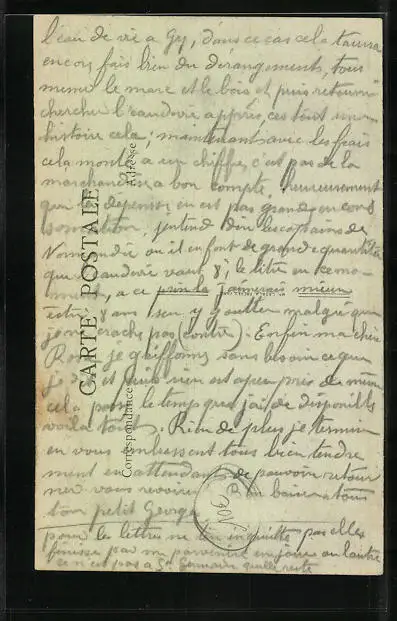 l'eau de vie a Gy, dans ce cas cela tourra
encore, fais bien du dérangements, tous
mener le marc et le bois et puis retourner
chercher l'eaudevie apprès, ces tout une
histoire cela; maintenant avec les frais
cela monte a un chiffre, c'est pas de la
marchandise a bon compte, heureusement
que la depense en est pas grande en cons
somation, j'entend dire les copains de
Normandie ou il en font de grande quantitée
que l'eaudevie vaut 8f le litre en ce mo-
ment, a ce prix la j'aimerais mieux
être 8 ans sen y goutter malgré que
j'en crache pas (contre). Enfin ma chère
je griffonne sans besoin ce que
et puis rien est apeu près de même
cela passe le temps que j'ai de disponible
voila tout. Rien de plus je termine
en vous embrassent tous bien tendre
ment en attendant de pouvoir retour
ner vous revoir. Bon baiser a tous
ton petit George
pour les lettres ne t'en inquiette pas elles
finisse par me parvenir un jour ou l'autre
ce n'est pas a St Germain quelle reste
CARTE POSTALE
Correspondance
Adresse